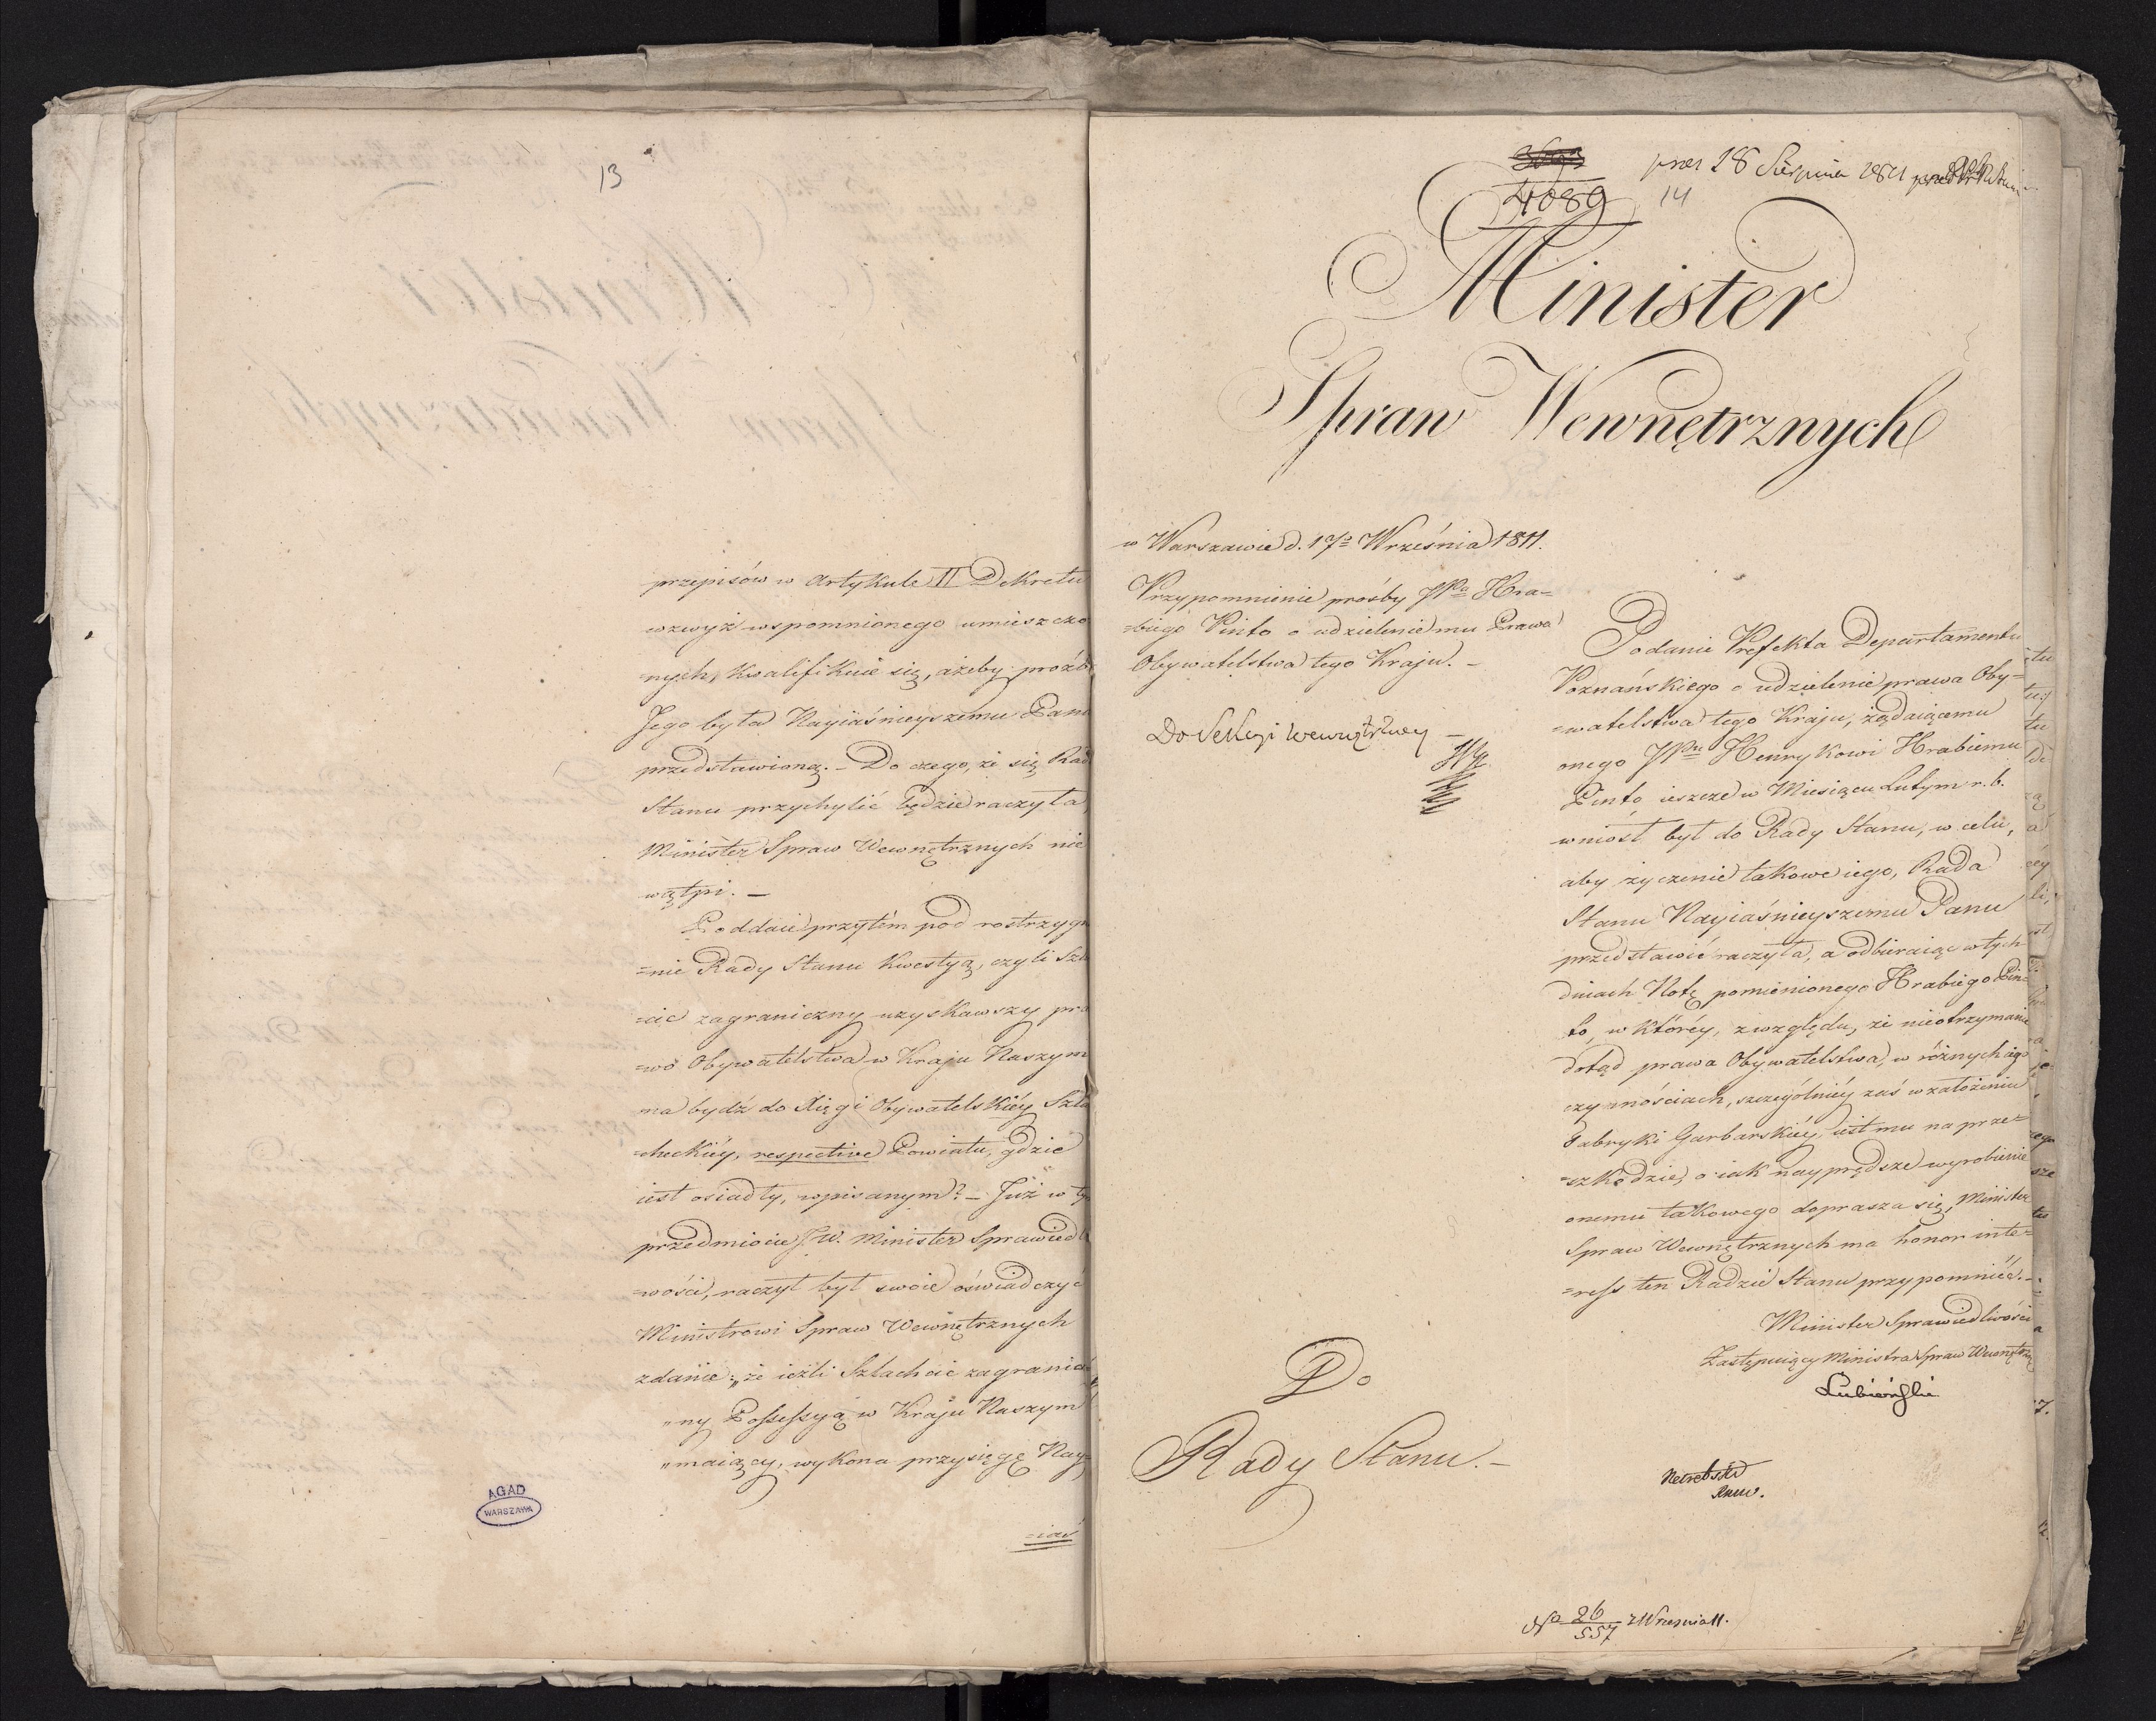 13
przepisów w Artykule II Dekretu
wzwyż wspomnionego umieszczo
=nych, kwalifikuie się, ażeby proźb
Jego była Nayiaśnieyszemu Panu
przedstawioną. _ Do czego, że się Rad
Stanu przychylić będzie raczyła,
Minister Spraw Wewnętrznych nie
wątpi. _
Poddaie przytém pod rostrzygn
=nie Rady Stanu kwestyą, czyli Szla
=cic zagraniczny uzyskawszy pra
=wo Obywatelstwa w Kraju Naszym
ma bydź do Xięgi Obywatelskiéy Szla
=checkiéy, respective Powiatu, gdzie
iest osiadły, wpisanym? _ Już w ty
przedmiocie J.W. Minister Sprawiedli
=wości, raczył był swoie oświadczyć
Ministrowi Spraw Wewnętrznych
zdanie: „że ieżli Szlachcic zagranicz
„ny Possessyą w Kraju Naszym
„maiący, wykona przysięgę Nay
=iaś
AGAD
WARSZAWA
4689
14
18 Sierpnia
Minister
Spraw Wewnętrznych
w Warszawie d. 17º Września 1811.
Przypomnienie prośby JPa Hra=
=biego Pinto o udzielenie mu Prawa
Obywatelstwa tego Kraju. _
Do Sekcyi wewnętrzney _
Podanie Prefekta Departamentu
Poznańskiego o udzielenie prawa Oby=
=watelstwa tego Kraju, żądaiącemu
onego JPnu Henrykowi Hrabiemu
Pinto ieszcze w Miesiącu Lutym r. b.
wniósł był do Rady Stanu, w celu,
aby życzenie takowe iego, Rada
Stanu Nayiaśnieyszemu Panu
przedstawić raczyła, a odbieraiąc w tych
dniach Notę pomienionego Hrabiego Pin=
to, w któréy, z względu, że nieotrzymanie
dotąd prawa Obywatelstwa, w różnych iego
czynnościach, szczególniéy zaś w założeniu
Fabryki Garbarskiéy, iest mu na prze=
=szkodzie, o iak nayprędsze wyrobienie
onemu takowego doprasza się, Minister
Spraw Wewnętrznych ma honor inte=
=ress ten Radzie Stanu przypomnieć. _
Minister Sprawiedliwości
Zastępuiący Ministra Spraw Wewnętrz
Lubieński
Do
Rady Stanu. _
Netrebski
No 26/557 z Września 11.